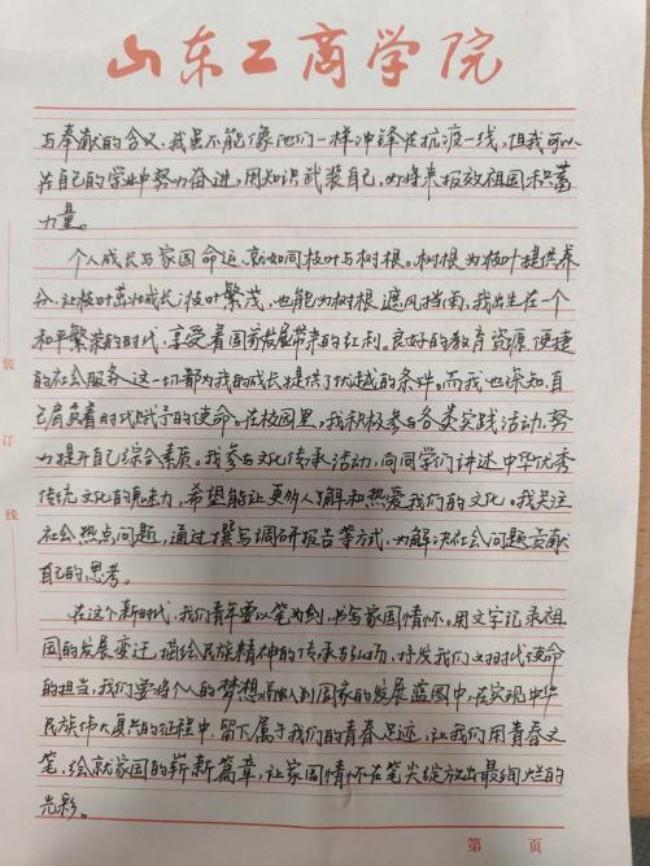 山东工商学院
与奉献的含义,我虽不能像他们一样冲锋在抗疫一线,但我可以
在自己的学业中努力奋进,用知识武装自己,为将来报效祖国积蓄
力量。
个人成长与家国命运,就如同枝叶与树根。树根为枝叶提供养
分,让枝叶茁壮成长;枝叶繁茂,也能为树根遮风挡雨,我出生在一个
和平繁荣的时代,享受着国家发展带来的红利。良好的教育资源,便捷
的社会服务,这一切都为我的成长提供了优越的条件。而我也深知,自
己肩负着时代赋予的使命。在校园里,我积极参与各类实践活动,努
力提升自己综合素质。我参与文化传承活动,向同学们讲述中华优秀
传统文化的魅力,希望能让更多人了解和热爱我们的文化。我关注
社会热点问题,通过撰写调研报告等方式,为解决社会问题贡献
自己的思考。
在这个新时代,我们青年要以笔为剑,书写家国情怀。用文字记录祖
国的发展变迁,描绘民族精神的传承与弘扬,抒发我们对时代使命
的担当,我们要将个人的梦想融入到国家的发展蓝图中,在实现中华
民族伟大复兴的征程中,留下属于我们的青春足迹,让我们用青春之
笔,绘就家国的崭新篇章,让家国情怀在笔尖绽放出最绚烂的
光彩。
装
订
线
第 页